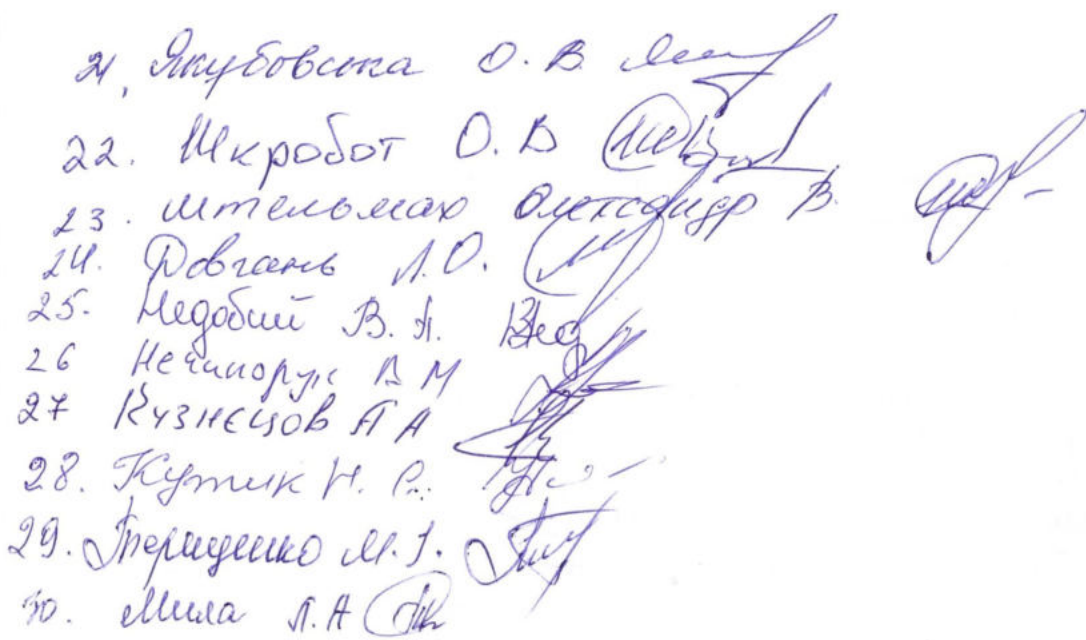 21. Якубовська О. В.
22. Шкробот О. В
23. Штельмах Олександр В.
24. Довгань Л. О.
25. Недобий В. А.
26 Нечипорук В М
27 Кузнєцов П А
28. Кутик Н. С.
29. Терещенко М. І.
30. Мила Л. А